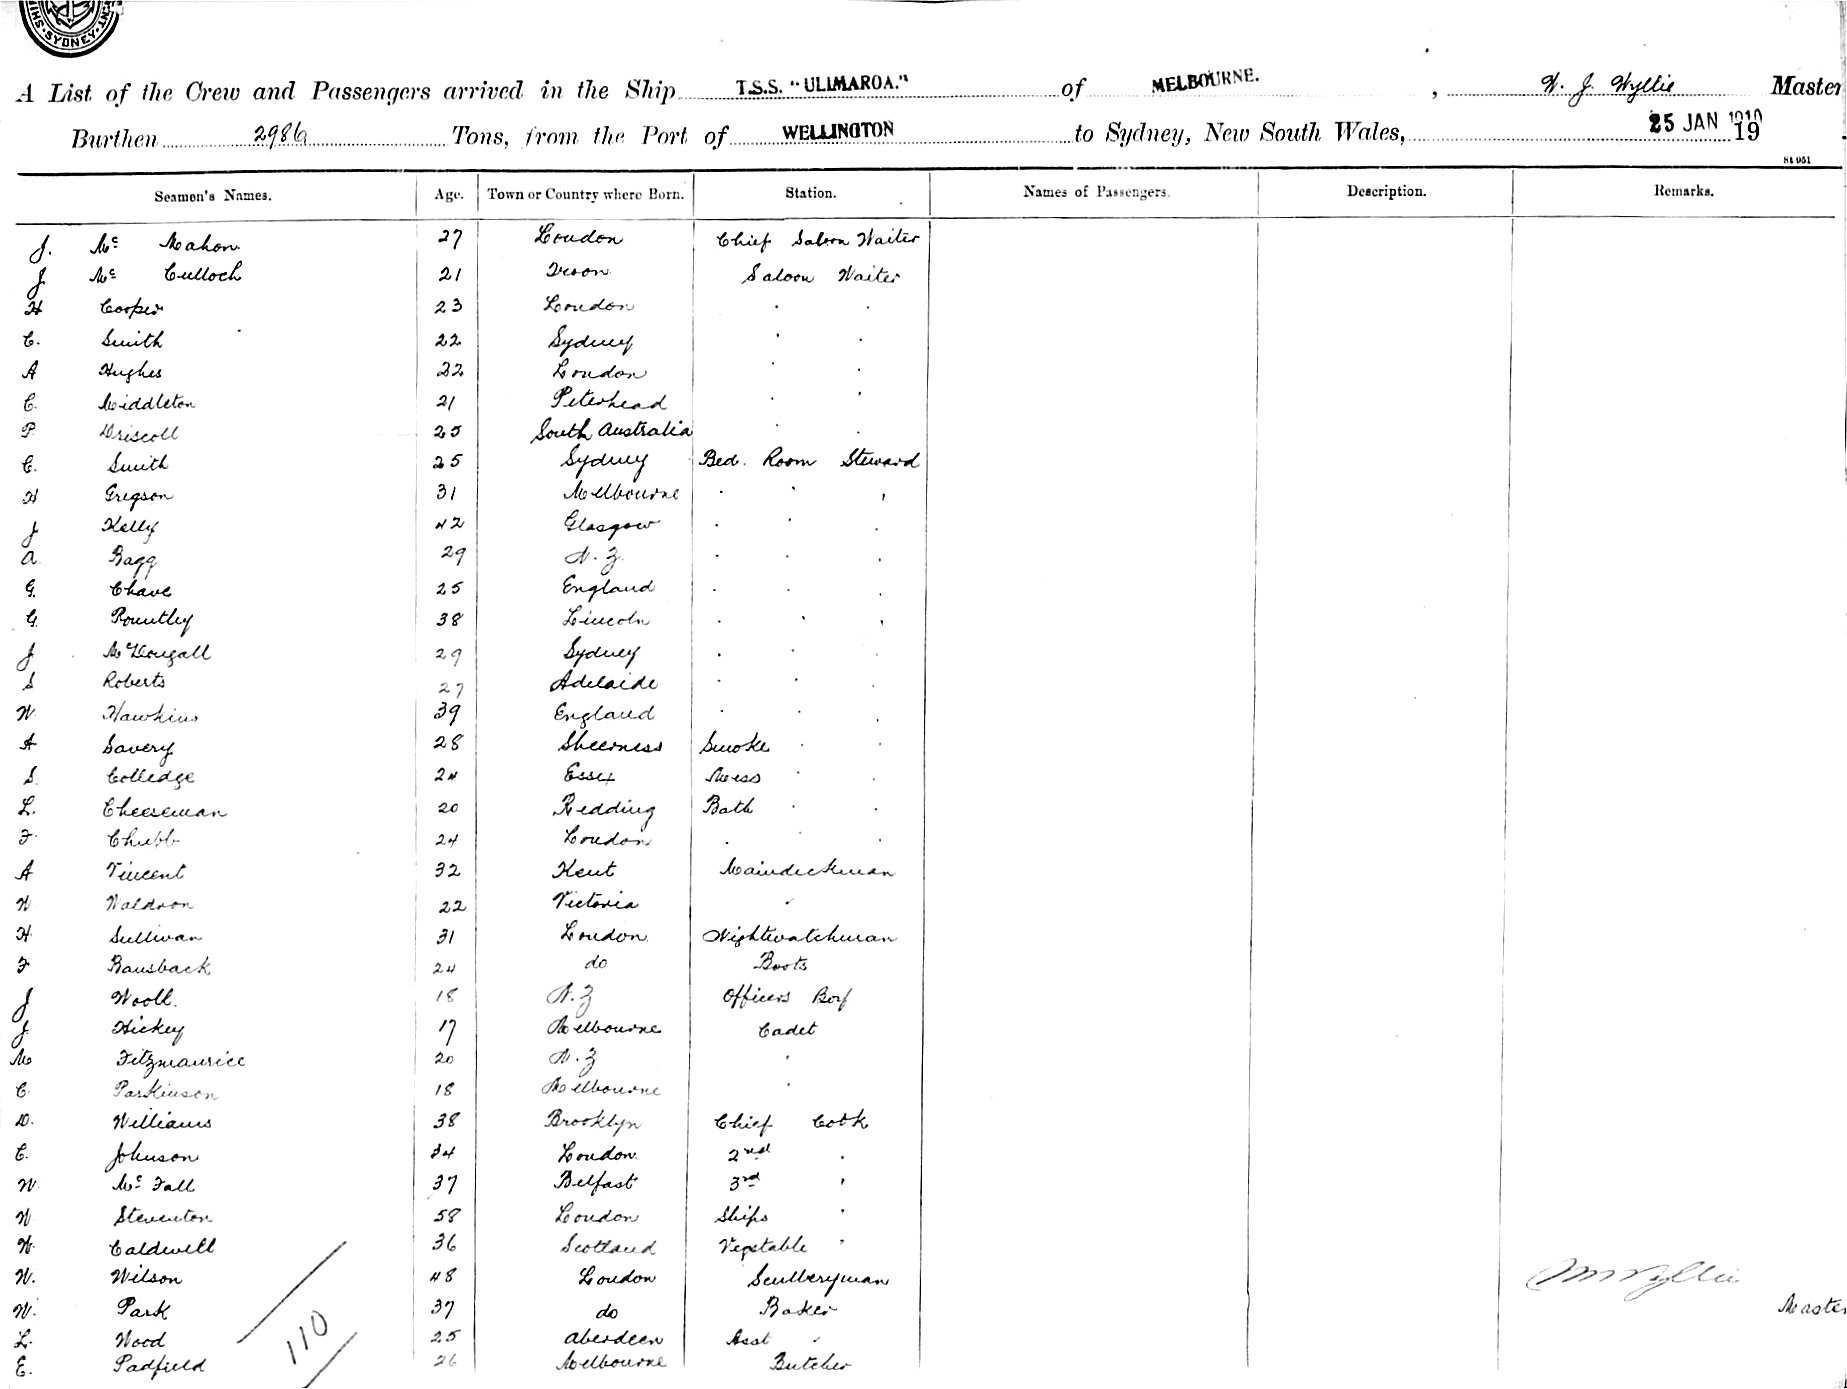 SYDNEY
A List of the Crew and Passengers arrived in the Ship T.S.S. "ULIMAROA." of MELBOURNE. , W. J. Wyllie Master
Burthen 2986 Tons, from the Port of WELLINGTON to Sydney, New South Wales, 25 JAN 1910 19
St 951
Seamen's Names. Age. Town or Country where Born. Station. Names of Passengers. Description. Remarks.
J. Mc Mahon 27 London Chief Saloon Waiter
J Mc Culloch 21 Troon Saloon Waiter
H Cooper 23 London " "
C. Smith 22 Sydney " "
A Hughes 22 London " "
C. Middleton 21 Peterhead " "
P. Driscoll 25 South Australia " "
C. Smith 25 Sydney Bed. Room Steward
H Gregson 31 Melbourne " " "
J Kelly 42 Glasgow " " "
A Bagg 29 N.Z. " " "
G. Chave 25 England " " "
G. Pountley 38 Lincoln " " "
J McDougall 29 Sydney " " "
S Roberts 27 Adelaide " " "
W Hawkins 39 England " " "
A Savery 28 Sheerness Smoke " "
S. Colledge 24 Essex Mess " "
L. Cheeseman 20 Redding Bath " "
F. Chubb 24 London " " "
A Vincent 32 Kent Maindeckman
W. Waldron 22 Victoria "
H Sullivan 31 London Nightwatchman
F Bausback 24 do Boots
J Wooll. 18 N.Z Officers Boy
J. Hickey 17 Melbourne Cadet
M Fitzmaurice 20 N.Z "
C. Parkinson 18 Melbourne "
D. Williams 38 Brooklyn Chief Cook
C. Johnson 34 London 2nd "
W. McFall 37 Belfast 3rd "
W Steventon 58 London Ships "
W. Caldwell 36 Scotland Vegetable "
W. Wilson 48 London Sculleryman
W. Park 37 do Baker
L. Wood 25 Aberdeen Asst "
E. Padfield 26 Melbourne Butcher
110
Wyllie
Master